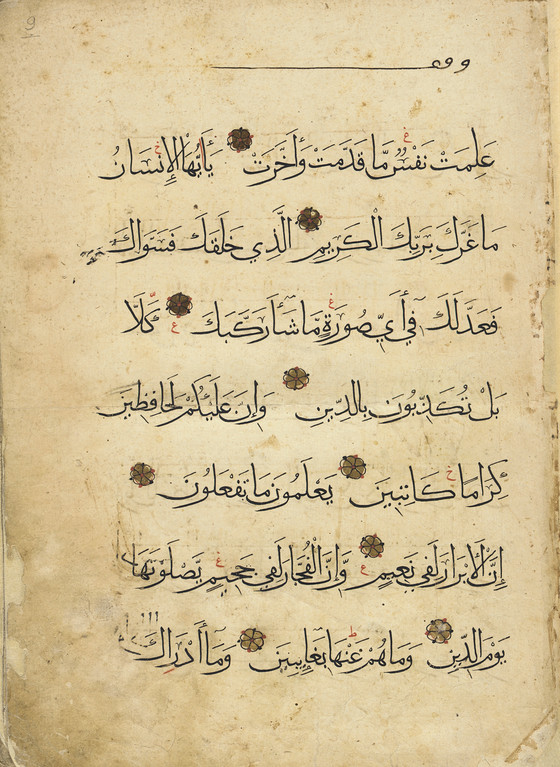 9
وقف
عَلِمَتْ نَفْسٌ مَّا قَدَّمَتْ وَأَخَّرَتْ يَأَيُّهَا الْإِنسَانُ
مَا غَرَّكَ بِرَبِّكَ الْكَرِيمِ الَّذِي خَلَقَكَ فَسَوَّاكَ
فَعَدَّلَكَ فِي أَيِّ صُورَةٍ مَّا شَآءَ رَكَّبَكَ كَلَّا
بَلْ تُكَذِّبُونَ بِالدِّينِ وَإِنَّ عَلَيْكُمْ لَحَافِظِينَ
كِرَامًا كَاتِبِينَ يَعْلَمُونَ مَا تَفْعَلُونَ
إِنَّ الْأَبْرَارَ لَفِي نَعِيمٍ وَإِنَّ الْفُجَّارَ لَفِي جَحِيمٍ يَصْلَوْنَهَا
يَوْمَ الدِّينِ وَمَا هُمْ عَنْهَا بِغَآئِبِينَ وَمَآ أَدْرَاكَ